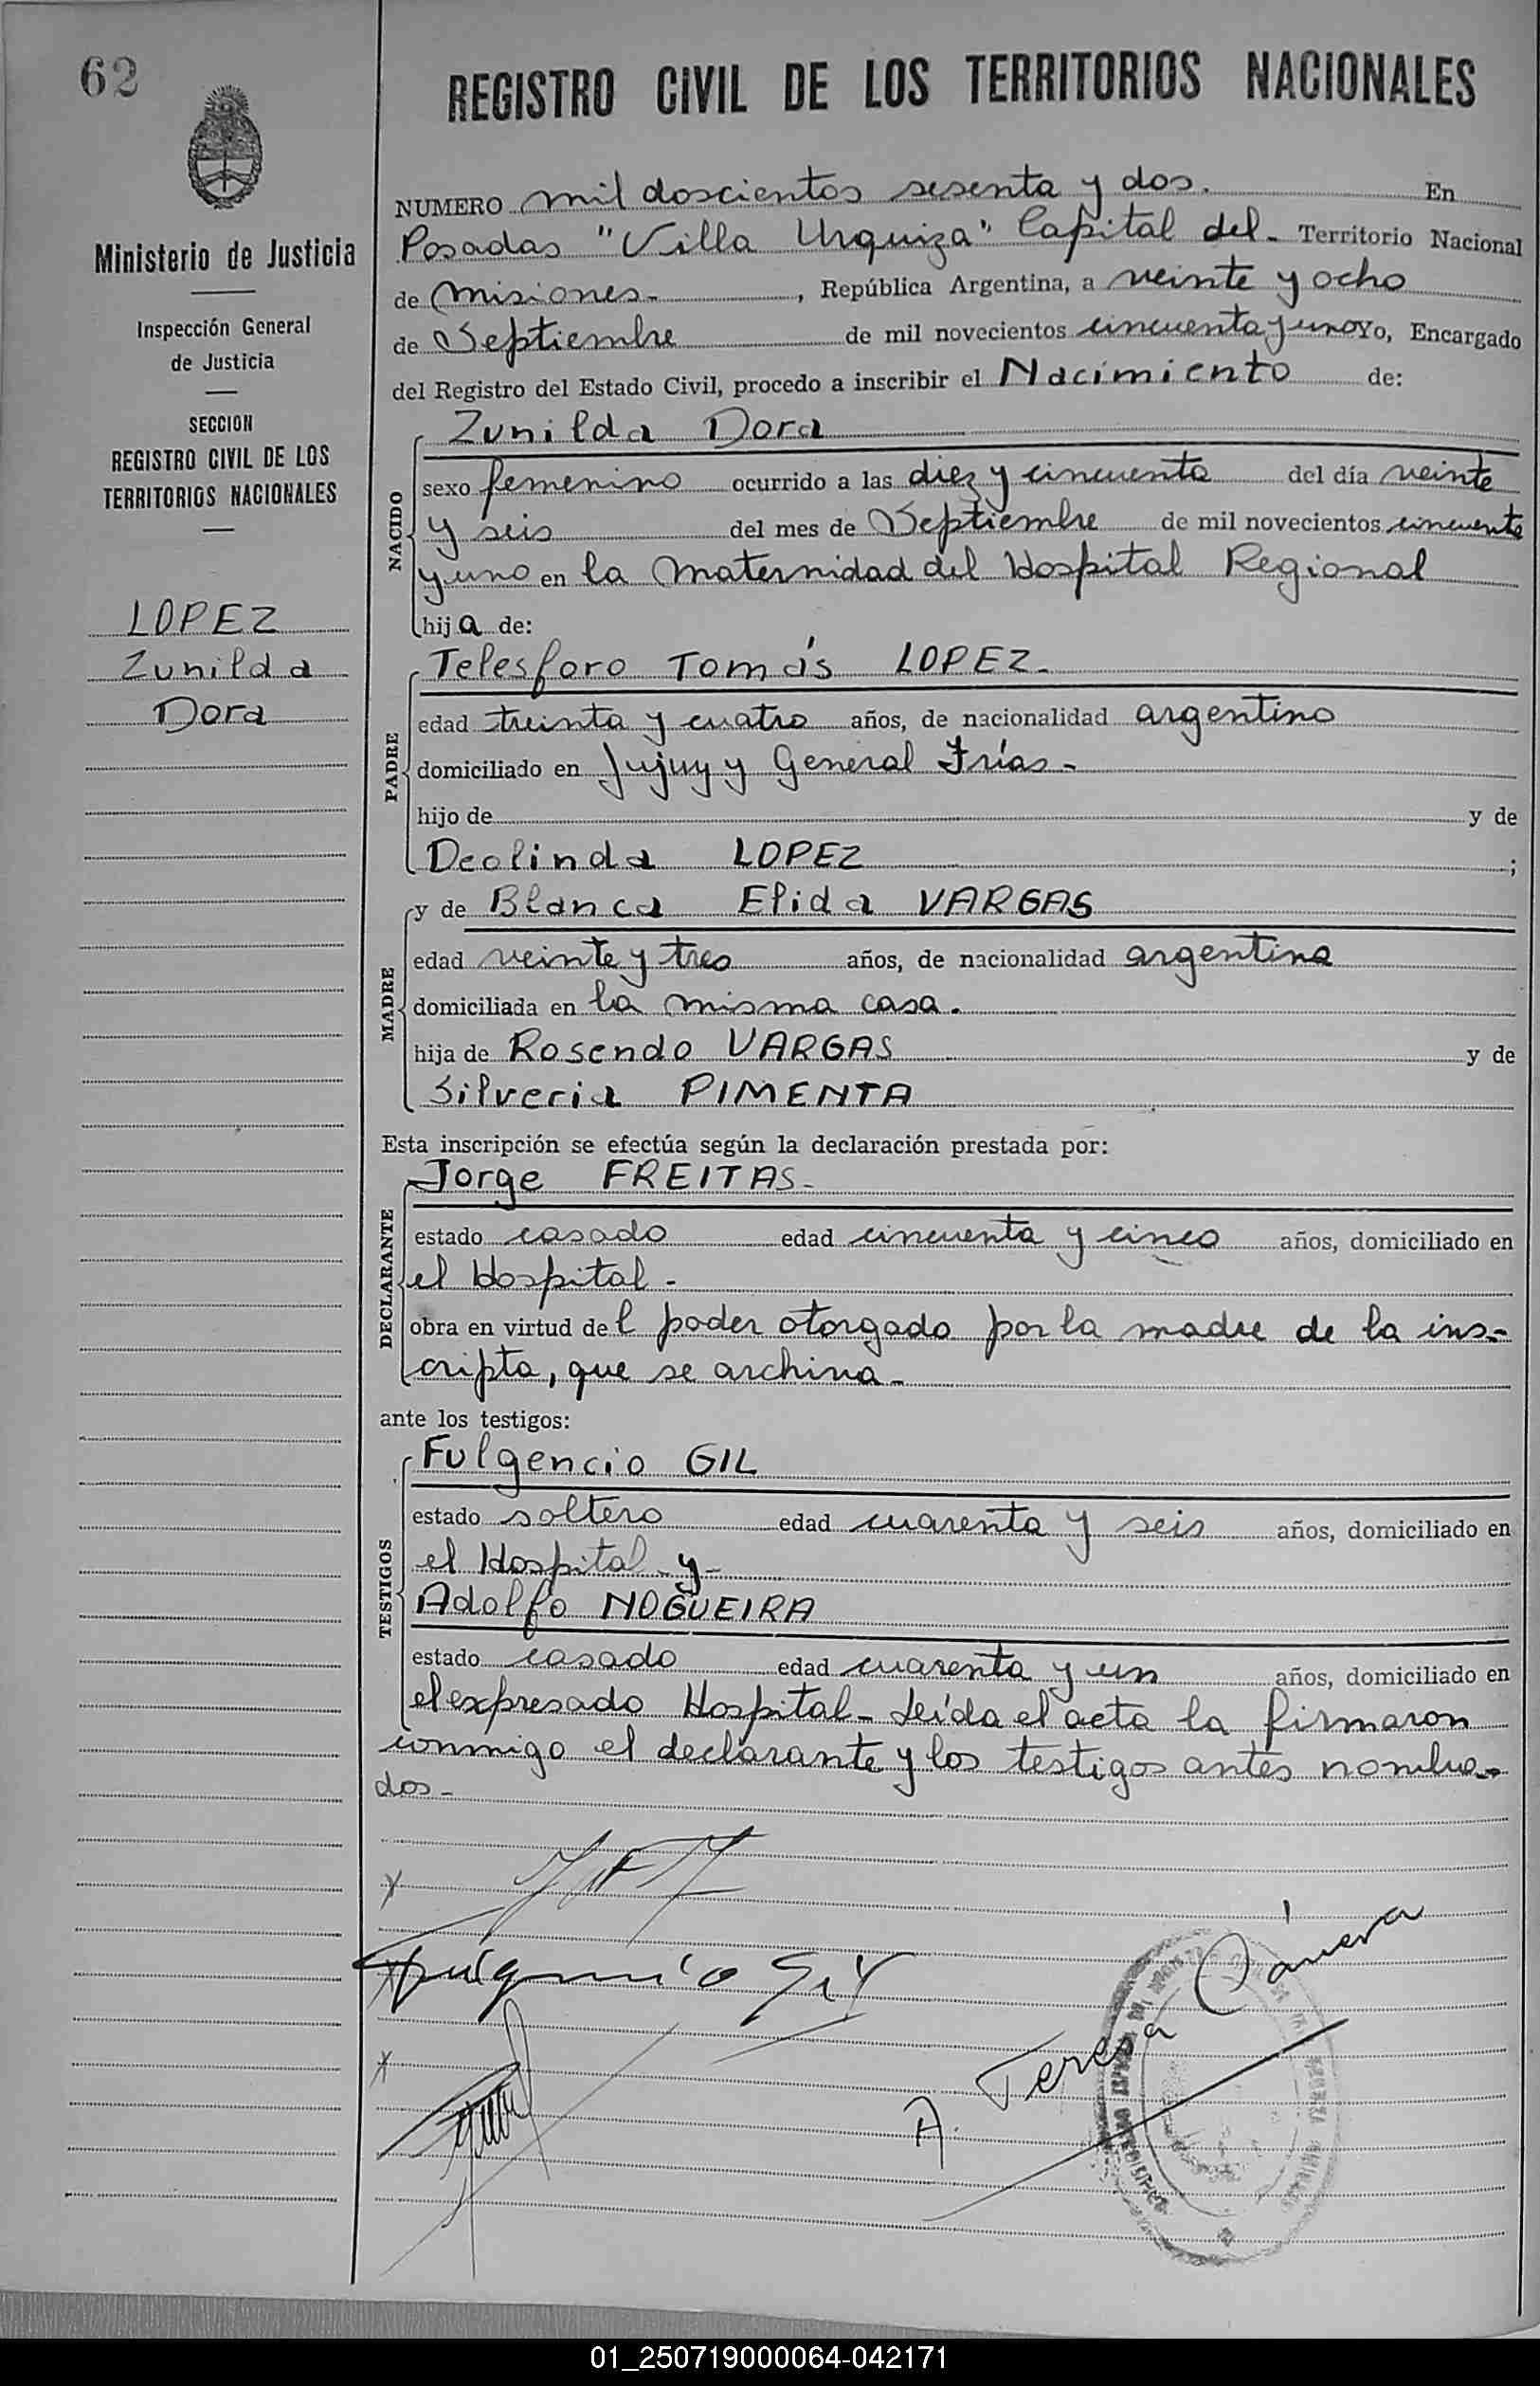 62
REGISTRO CIVIL DE LOS TERRITORIOS NACIONALES
Ministerio de Justicia
Inspección General
de Justicia
SECCION
REGISTRO CIVIL DE LOS
TERRITORIOS NACIONALES
LOPEZ
Zunilda
Dora
NUMERO mil doscientos sesenta y dos. En
Posadas "Villa Urquiza" Capital del - Territorio Nacional
de Misiones - , República Argentina, a veinte y ocho
de Septiembre de mil novecientos cincuenta y uno Yo, Encargado
del Registro del Estado Civil, procedo a inscribir el Nacimiento de:
NACIDO
Zunilda Dora
sexo femenino ocurrido a las diez y cincuenta del día veinte
y seis del mes de Septiembre de mil novecientos cincuenta
y uno en la Maternidad del Hospital Regional
hija de:
PADRE
Telesforo Tomás LOPEZ -
edad treinta y cuatro años, de nacionalidad argentino
domiciliado en Jujuy y General Frías -
hijo de y de
Deolinda LOPEZ ;
MADRE
y de Blanca Elida VARGAS
edad veinte y tres años, de nacionalidad argentina
domiciliada en la misma casa.
hija de Rosendo VARGAS y de
Silveria PIMENTA
Esta inscripción se efectúa según la declaración prestada por:
DECLARANTE
Jorge FREITAS -
estado casado edad cincuenta y cinco años, domiciliado en
el Hospital -
obra en virtud del poder otorgado por la madre de la ins-
cripta, que se archiva -
ante los testigos:
TESTIGOS
Fulgencio GIL
estado soltero edad cuarenta y seis años, domiciliado en
el Hospital y -
Adolfo NOGUEIRA
estado casado edad cuarenta y un años, domiciliado en
el expresado Hospital - Leída el acta la firmaron
conmigo el declarante y los testigos antes nombra-
dos -
Fulgencio Gil
A. Teresa Cánera
01_250719000064-042171